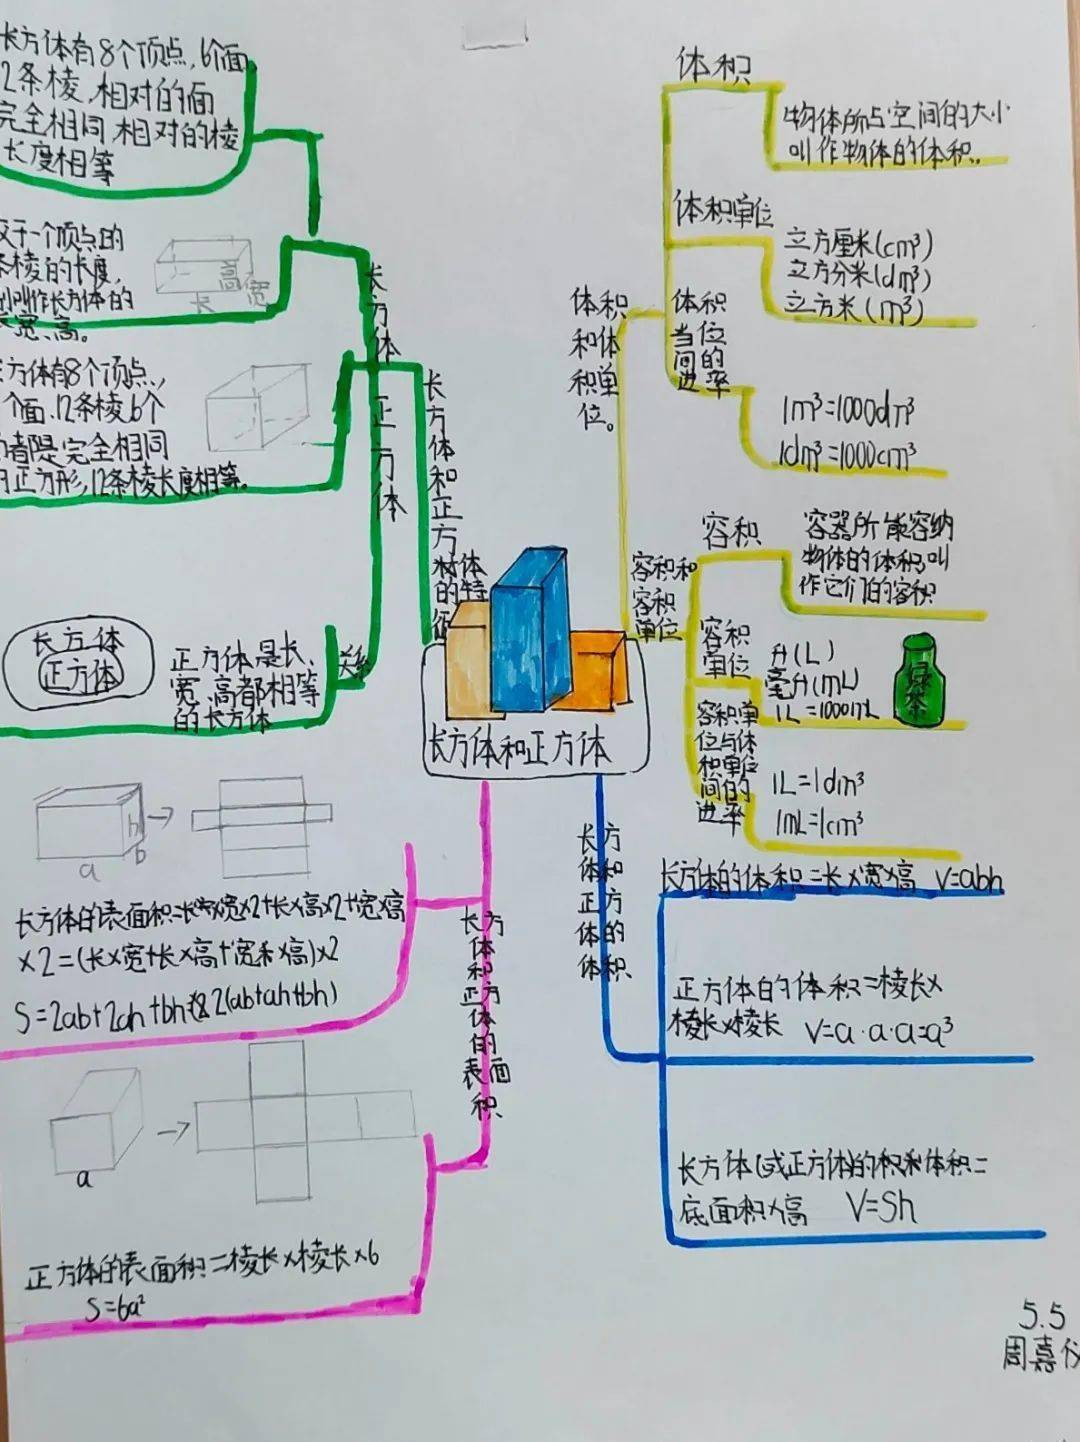 长方体有8个顶点,6个面
2条棱,相对的面
完全相同,相对的棱
长度相等
于一个顶点的
条棱的长度,
叫作长方体的
宽、高。
长
高
宽
方体有8个顶点,
个面、12条棱6个
都是完全相同
正方形,12条棱长度相等。
长方体
正方体
正方体是长、
宽、高都相等
的长方体
关系
长方体
正方体
长方体和正方
体的特征
长方体和正方体
体积
物体所占空间的大小
叫作物体的体积。
体积单位
立方厘米(cm³)
立方分米(dm³)
立方米(m³)
体积
和体
积单
位。
体积
当位
间的
进率
1m³=1000dm³
1dm³=1000cm³
容积和
容积
单位
容积
容器所能容纳
物体的体积叫
作它们的容积
容积
单位
升(L)
毫升(mL)
1L=1000mL
绿茶
容积单
位与体
积单位
间的
进率
1L=1dm³
1mL=1cm³
h
a
b
长方体的表面积=长×宽×2+长×高×2+宽×高
×2=(长×宽+长×高+宽×高)×2
S=2ab+2ah+bh 2(ab+ah+bh)
长方
体和
正方
体的
表面
积
a
正方体的表面积=棱长×棱长×6
S=6a²
长方
体和
正方
体的
体积
长方体的体积=长×宽×高 V=abh
正方体的体积=棱长×
棱长×棱长 V=a·a·a=a³
长方体(或正方体)的积和体积=
底面积×高 V=Sh
5.5
周嘉仪